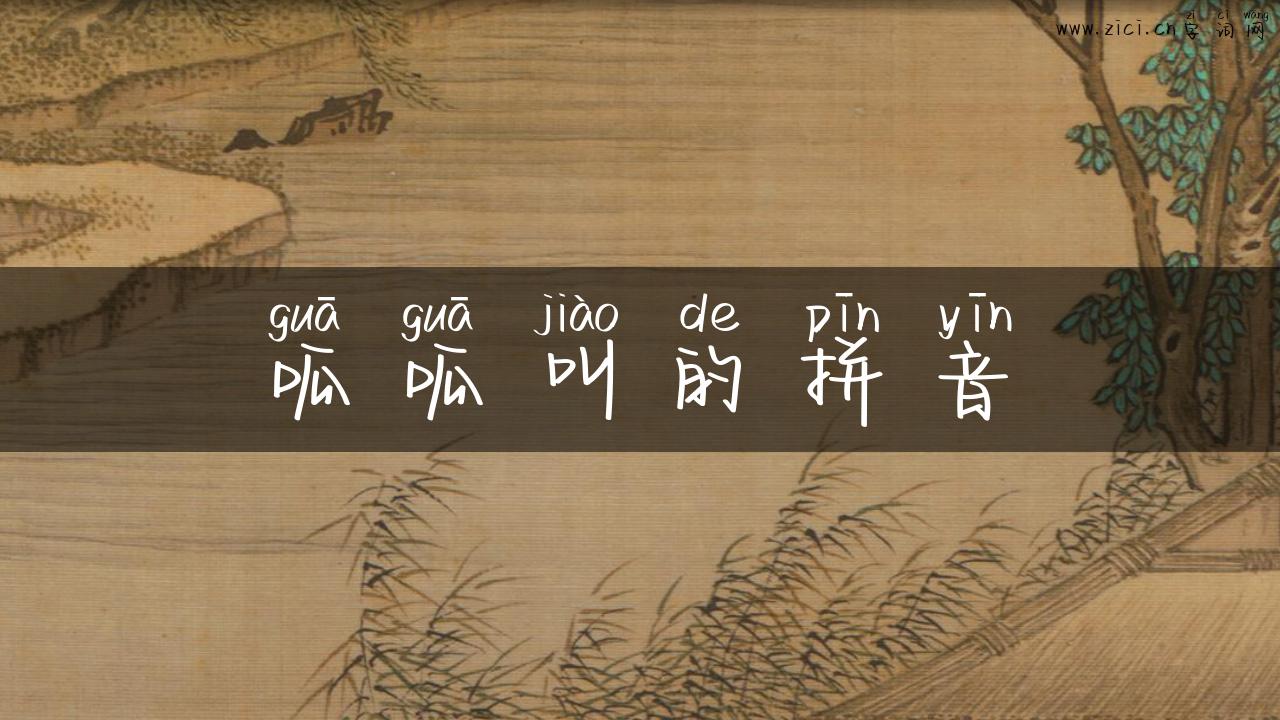 zì cí wǎng
www.zici.cn字词网
guā guā jiào de pīn yīn
呱呱叫的拼音